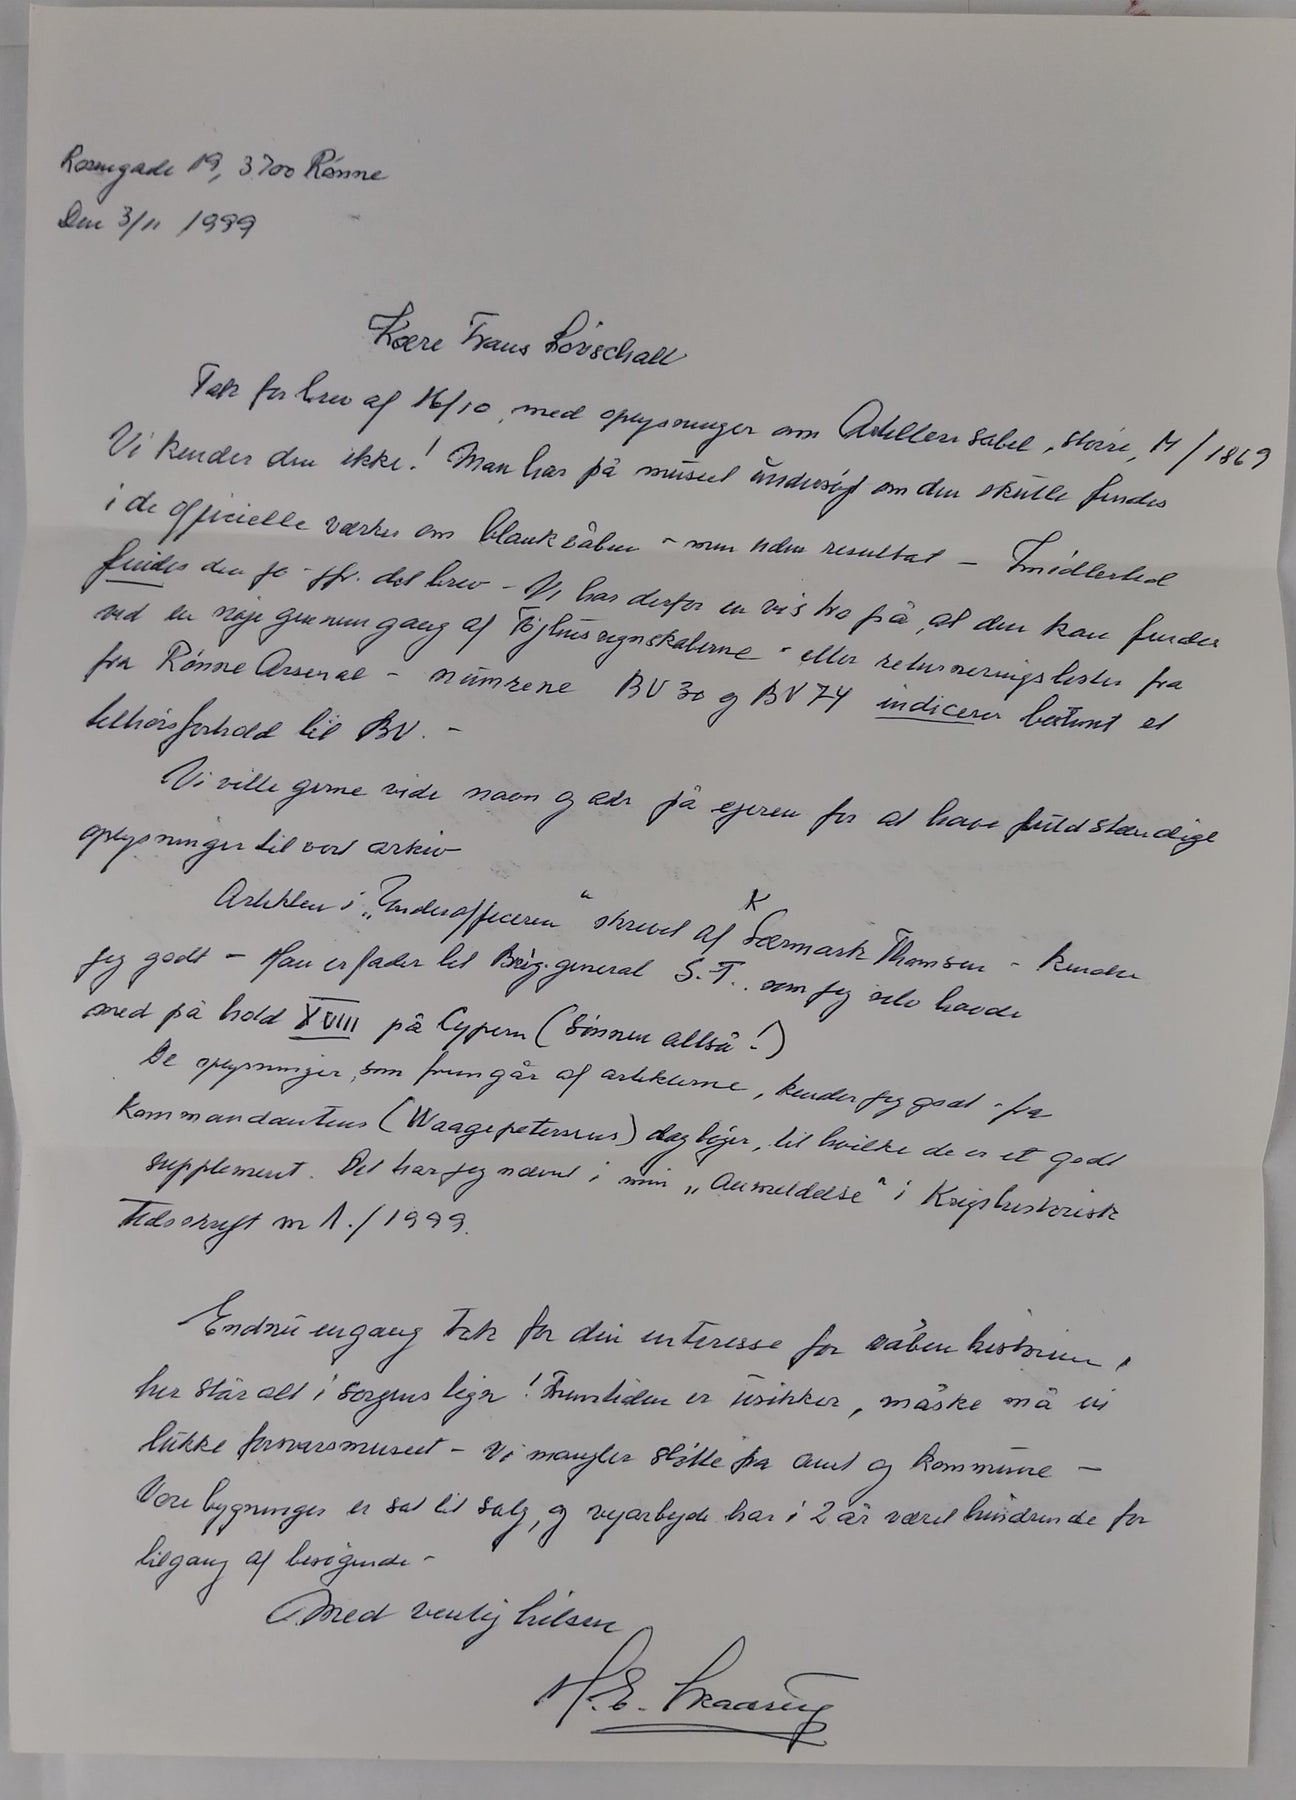 Rosengade 19, 3700 Rønne
Den 3/11 1999
Kære Frans Løvschall
Tak for brev af 16/10, med oplysninger om Artilleri sabel, større, M/1869
Vi kender den ikke! Man har på museet undersøgt om den skulle findes
i de officielle værker om blankvåben - men uden resultat - Imidlertid
findes den jo - jfr. dit brev - Vi har derfor en vis tro på, at den kan findes
ved en nøje gennemgang af Tøjhusregnskaberne - eller returneringslister fra
fra Rønne Arsenal - numrene BV 30 og BV 74 indicerer bestemt et
tilhørsforhold til BV. -
Vi ville gerne vide navn og adr på ejeren for at have fuldstændige
oplysninger til vort arkiv
Artiklen i „Underofficeren“ skrevet af K Særmark Thomsen - kender
jeg godt - Han er fader til Brig.general S.T. som jeg selv havde
med på hold XVIII på Cypern (sønnen altså!)
De oplysninger, som fremgår af artiklerne, kender jeg godt - fra
Kommandantens (Waagepetersens) dagbøger, til hvilke de er et godt
supplement. Det har jeg nævnt i min „Anmeldelse“ i Krigshistorisk
Tidsskrift nr 1./1999.
Endnu engang tak for din interesse for våbenhistorien,
her står alt i sorgens tegn! Fremtiden er usikker, måske må vi
lukke forsvarsmuseet - Vi mangler støtte fra amt og kommune -
Vore bygninger er sat til salg, og vejarbejde har i 2 år været hindrende for
tilgang af besøgende -
Med venlig hilsen
H.E. Skaarup